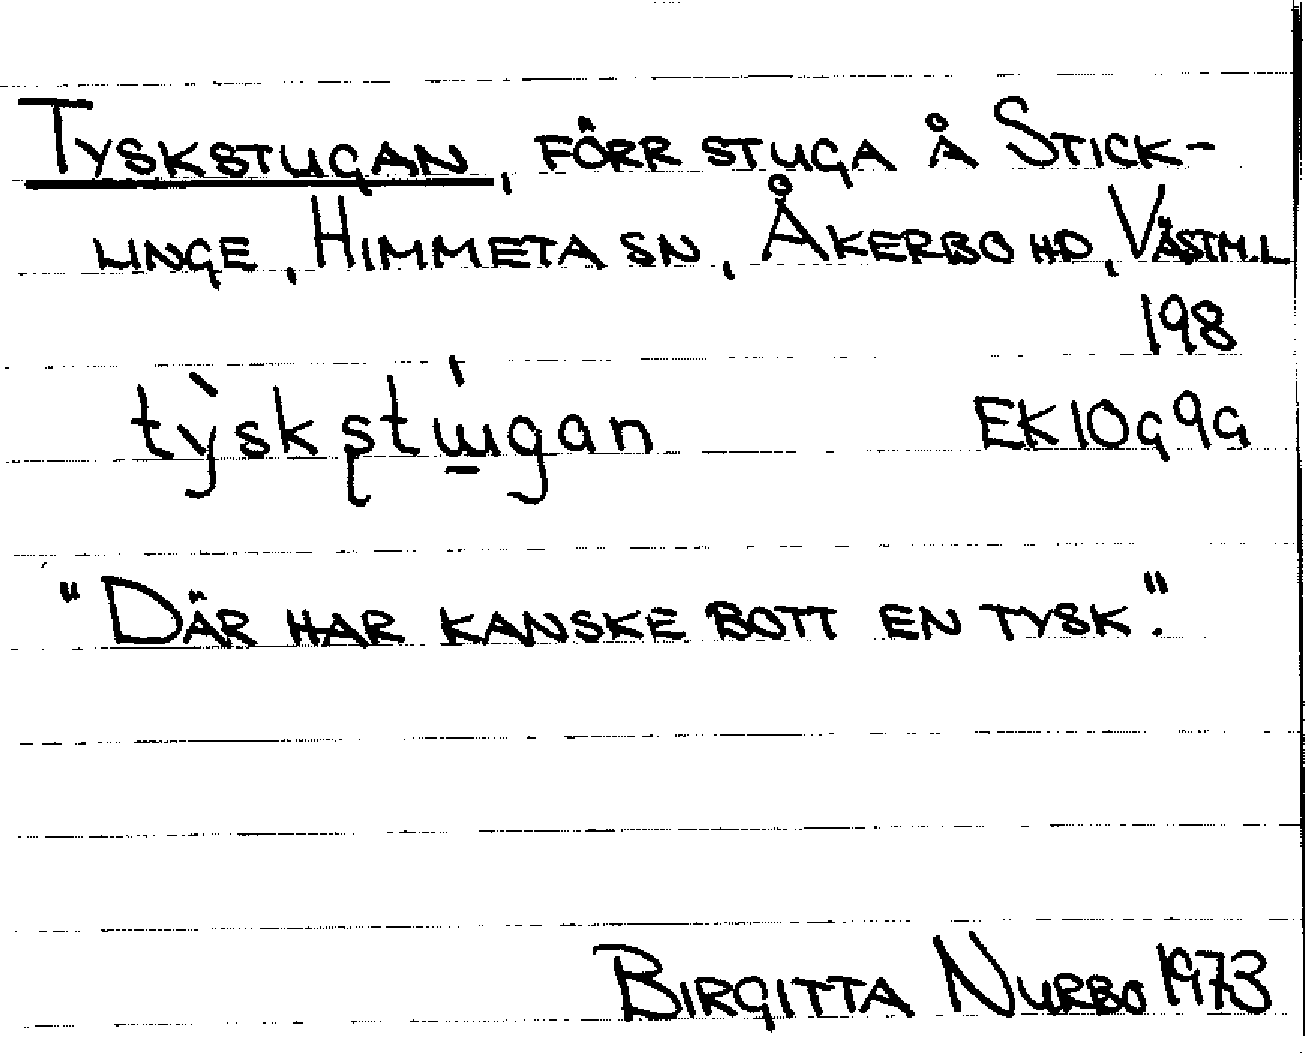 Tyskstugan, förr stuga å Stick-
linge, Himmeta sn, Åkerbo hd, Västm.l
198
tỳskştɯ́gan EK10G9G
"Där har kanske bott en tysk."
Birgitta Nurbo 1973